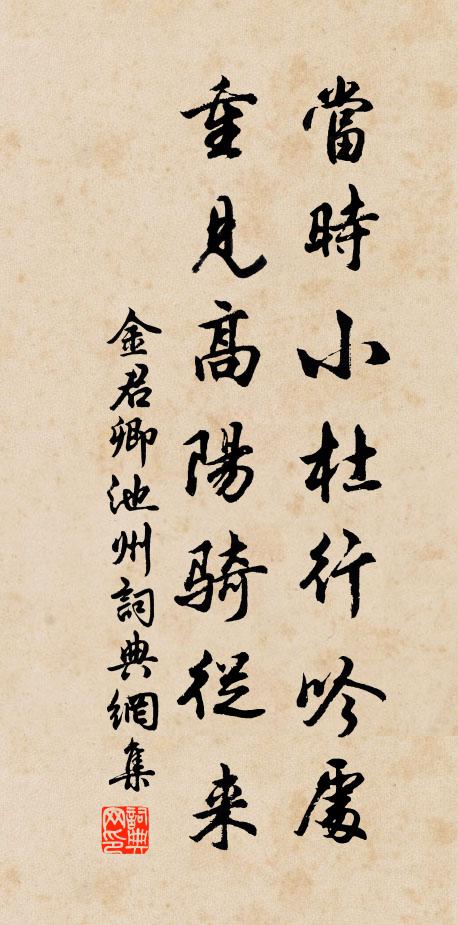 當時小杜行吟處
重見高陽騎從来
金君卿池州詞典網集
詞典网印